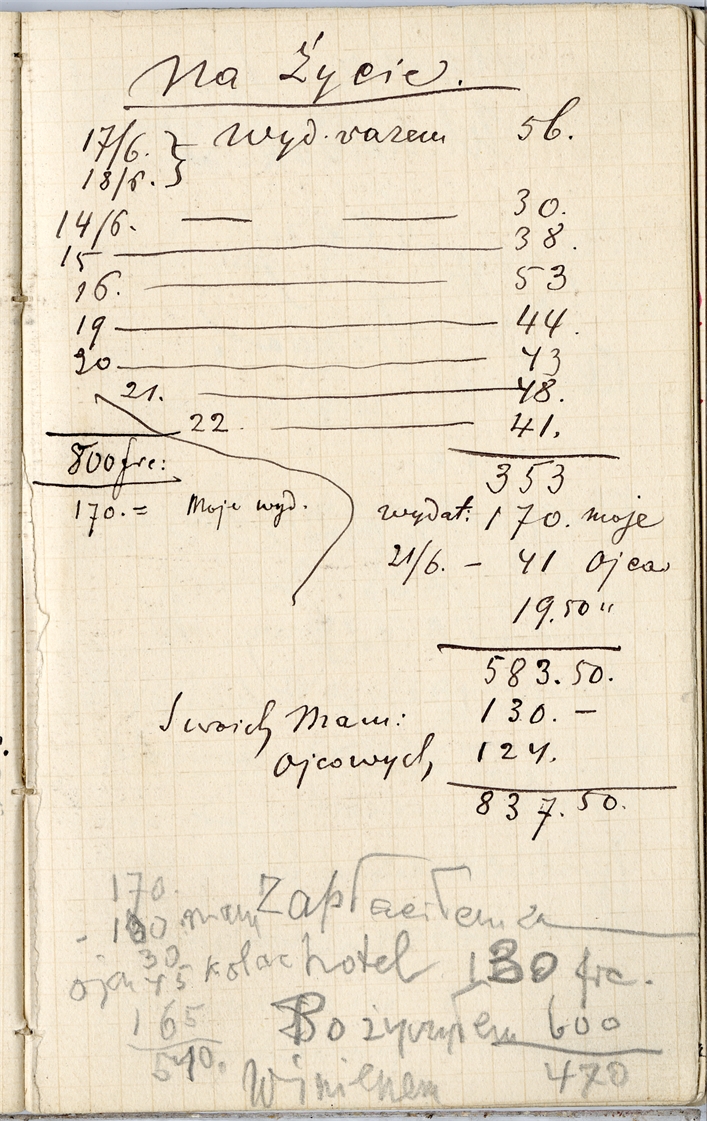 Na Życie.
17/6. } Wyd. razem 56.
18/6. }
14/6. — — 30.
15 — 38.
16. — 53
19 — 44.
20 — 43
21. — 48.
22 — 41.
353
800 frc:
170.= Moje wyd.
wydał: 170. moje
21/6. – 41 Ojca
19.50 "
583.50.
Swoich Mam: 130. –
Ojcowych, 124.
837.50.
170.
Zapłaciłem za
- 130 mam
hotel 130 frc.
30
ojca 45
165
Pożyczyłem 600
540.
Winienem 470